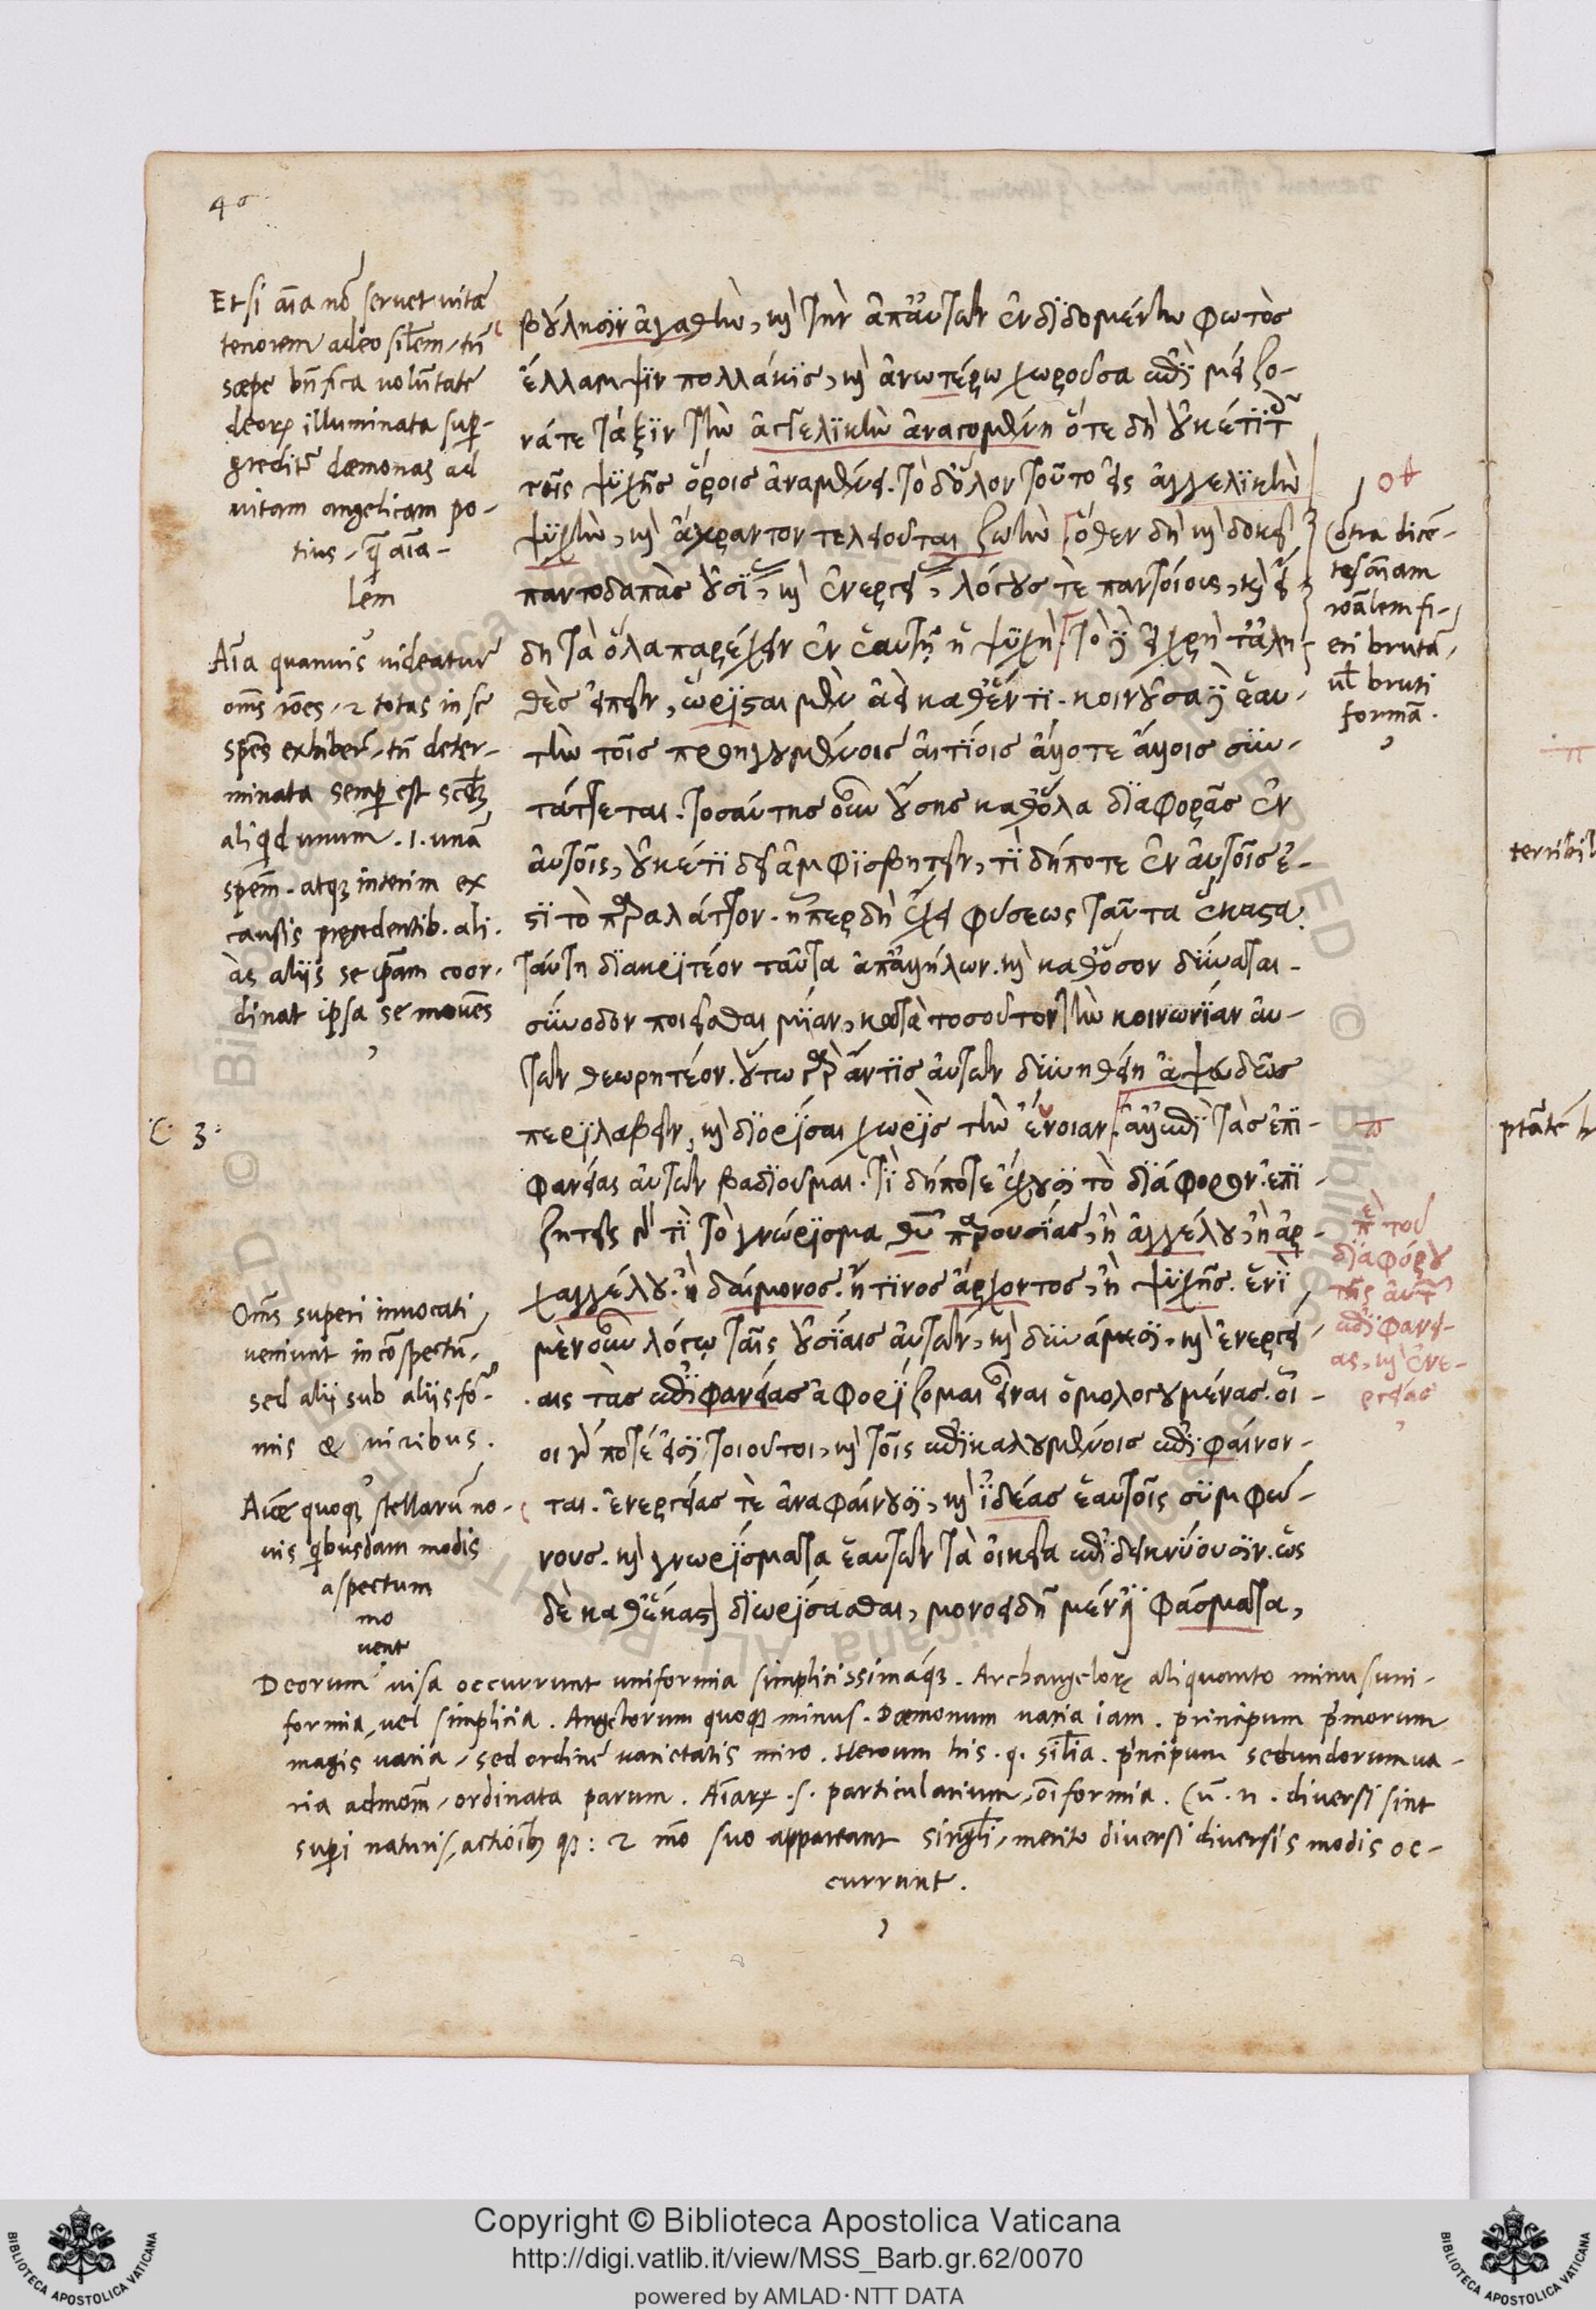 40
Et si aĩa nõ seruet uitã
tenorem adeo silem, tñ
sæpe bñfica uolũtate
deorꝝ illuminata sup-
greditr dæmonas ad
uitam angelicam po-
tius, q̃ aĩa-
lem
Aĩa quamuis uideatur
oms rões, & totas in se
spes exhiberẽ, tñ deter-
minata semp est
aliqd unum .i. unã
spem. atqꝫ interim ex
causis prædentib. ali-
às aliis se coor-
dinat ipsa se mouẽs
C. 3.
Oms superi inuocati,
ueniunt in cõspectũ,
sed alij sub aliis for-
mis & uiribus.
quoqꝫ stellarũ no-
uis qbusdam modis
aspectum
mo
uent
βούλησιν ἀγαθὴν, καὶ τὴν ἀπ' αὐτῶν ἐνδιδομένην φωτὸς
ἔλλαμψιν πολλάκις, καὶ ἀνωτέρω χωροῦσα ἐπὶ μείζο-
νά τε τάξιν τὴν ἀγγελικὴν ἀναγομένη ὅτε δὴ οὐκέτι
τοῖς ψυχῆς ὅροις ἀναμένει. τὸ δ' ὅλον τοῦτο εἰς ἀγγελικὴν
ψυχὴν, καὶ ἄχραντον τελειοῦται ζωὴν ὅθεν δὴ καὶ δοκεῖ
παντοδαπὰς οὐσί, καὶ ἐνεργεί, λόγους τὲ παντοίους, καὶ εἴ-
δη τὰ ὅλα παρέχειν ἐν ἑαυτῇ ἡ ψυχή. τὸ δ' εἰ χρὴ τἀλη-
θὲς εἰπεῖν, ὥρισται μὲν ἀεὶ καθ' ἕν τι. κοινοῦσα δ' ἑαυ-
τὴν τοῖς προηγουμένοις αἰτίοις ἄλλοτε ἄλλοις συν-
τάττεται. τοσαύτης οὖν οὔσης καθ' ὅλα διαφορᾶς ἐν
αὐτοῖς, οὐκέτι δεῖ ἀμφισβητεῖν, τί δήποτε ἐν αὐτοῖς ἐ-
στὶ τὸ παραλάττον. ᾗπερ δὴ ἔχει φύσεως ταῦτα ἕκαστα.
ταύτῃ διακριτέον ταῦτα ἀπ' ἀλλήλων. καὶ καθ' ὅσον δύναται
σύνοδον ποιεῖσθαι μίαν, κατὰ τοσοῦτον τὴν κοινωνίαν αὐ-
τῶν θεωρητέον. οὕτω γὰρ ἄν τις αὐτῶν δυνηθείη ἀψευδῶς
περιλαβεῖν, καὶ διορίσαι χωρὶς τὴν ἔννοιαν. ἀλλ' ἐπὶ τὰς ἐπι-
φανείας αὐτῶν βαδιοῦμαι. τί δήποτε ἔχουσι τὸ διάφορον. ἐπι-
ζητεῖς γὰρ τί τὸ γνώρισμα θεοῦ παρουσίας, ἢ ἀγγέλου, ἢ ἀρ-
χαγγέλου. ἢ δαίμονος. ἤ τινος ἄρχοντος, ἢ ψυχῆς. ἑνὶ
μὲν οὖν λόγῳ ταῖς οὐσίαις αὐτῶν, καὶ δυνάμεσι, καὶ ἐνεργεί-
αις τὰς ἐπιφανείας ἀφορίζομαι εἶναι ὁμολογουμένας. οἷ-
οι γάρ ποτέ εἰσι τοιοῦτοι, καὶ τοῖς ἐπικαλουμένοις ἐπιφαίνον-
ται. ἐνεργείας τὲ ἀναφαίνουσι, καὶ ἰδέας ἑαυτοῖς συμφώ-
νους. καὶ γνωρίσματα ἑαυτῶν τὰ οἰκεῖα ἐπιδεικνύουσιν. ὡς
δὲ καθ' ἕκαστον διωρίσασθαι, μονοειδῆ μέν ἐστι φάσματα,
Cõtra dicẽ-
tes aĩam
rõalem fi-
eri brutã,
ul bruti
formã.
περὶ τοῦ
διαφόρου
τῆς αὐτῶν
ἐπιφανεί-
ας, καὶ ἐνε-
ργείας
Deorum uisa occurrunt uniformia simplicissimáqꝫ. Archangelorꝝ aliquanto minus uni-
formia, uel simplicia. Angelorum quoqꝫ minus. Dæmonum uaria iam. principum primorum
magis uaria, sed ordine uarietatis miro. Heroum his .q. silia. principum secundorum ua-
ria admom, ordinata parum. Aĩarꝝ .s. particularium, oĩformia. Cũ .n. diuersi sint
supi naturis, actioibꝫ qꝫ: & mõ suo appareant singli, merito diuersi diuersis modis oc-
currunt.
terribil
ptãtẽ
Copyright © Biblioteca Apostolica Vaticana
http://digi.vatlib.it/view/MSS_Barb.gr.62/0070
powered by AMLAD·NTT DATA
BIBLIOTECA APOSTOLICA VATICANA
BIBLIOTECA APOSTOLICA VATICANA